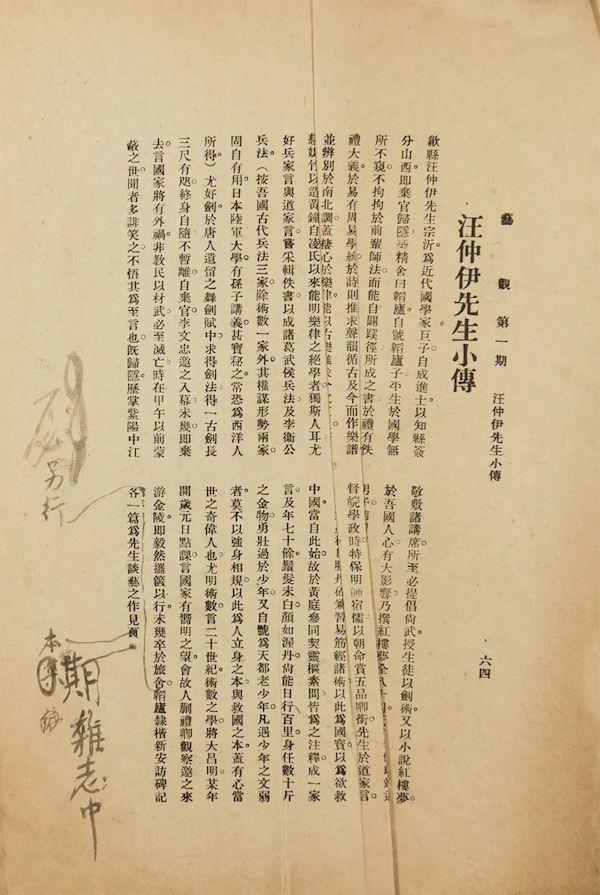 藝觀第一期　汪仲伊先生小傳
六四
汪仲伊先生小傳
歙縣汪仲伊先生宗沂爲近代國學家巨子自成進士以知縣簽
分山西即棄官歸隱葺精舍曰韜廬自號韜廬子平生於國學無
所不窺不拘拘於前輩師法而能自闢蹊徑所成之書於禮有佚
禮大義於易有周易學統於詩則推求聲韻循古及今而作樂譜
並辨別於南北調蓋棲心於樂律能以古樂
竹以造黃鐘自凌氏以來能明樂律之絕學者獨斯人耳尤
好兵家言與道家言嘗采輯佚書以成諸葛武侯兵法及李衞公
兵法（按吾國古代兵法三家除術數一家外其權謀形勢兩家
固自有用日本陸軍大學有孫子講義甚寶秘之常恐爲西洋人
所得）尤好劍於唐人遺留之舞劍賦中求得劍法得一古劍長
三尺有咫終身自隨不暫離自棄官李文忠邀之入幕未幾即棄
去言國家將有外禍非教民以材武必至滅亡時在甲午以前蒙
蔽之世聞者多誹笑之不悟其爲至言也旣歸隱歷掌紫陽中江
敬敷諸講席所至必提倡尙武授生徒以劍術又以小說紅樓夢
於吾國人心有大影響乃撰紅樓夢
男子
督皖學政時特保明師宿儒以朝命賞五品卿銜先生於道家言
習易筋經諸術以此爲國寶以爲欲救
中國當自此始故於黃庭參同契靈樞素問皆爲之注釋成一家
言及年七十餘鬚髮未白顏如渥丹尙能日行百里身任數十斤
之金物勇壯過於少年又自號爲天都老少年凡遇少年之文弱
者莫不以強身相規以此爲人立身之本與救國之本蓋有心當
世之奇偉人也尤明術數言二十世紀術數之學將大昌明某年
開歲元日點課言國家有嚮明之望會故人蒯禮卿觀察邀之來
游金陵即毅然攜篋以行未幾卒於旅舍韜廬隸楷新安訪碑記
各一篇爲先生談藝之作見
另行
本
期雜志中